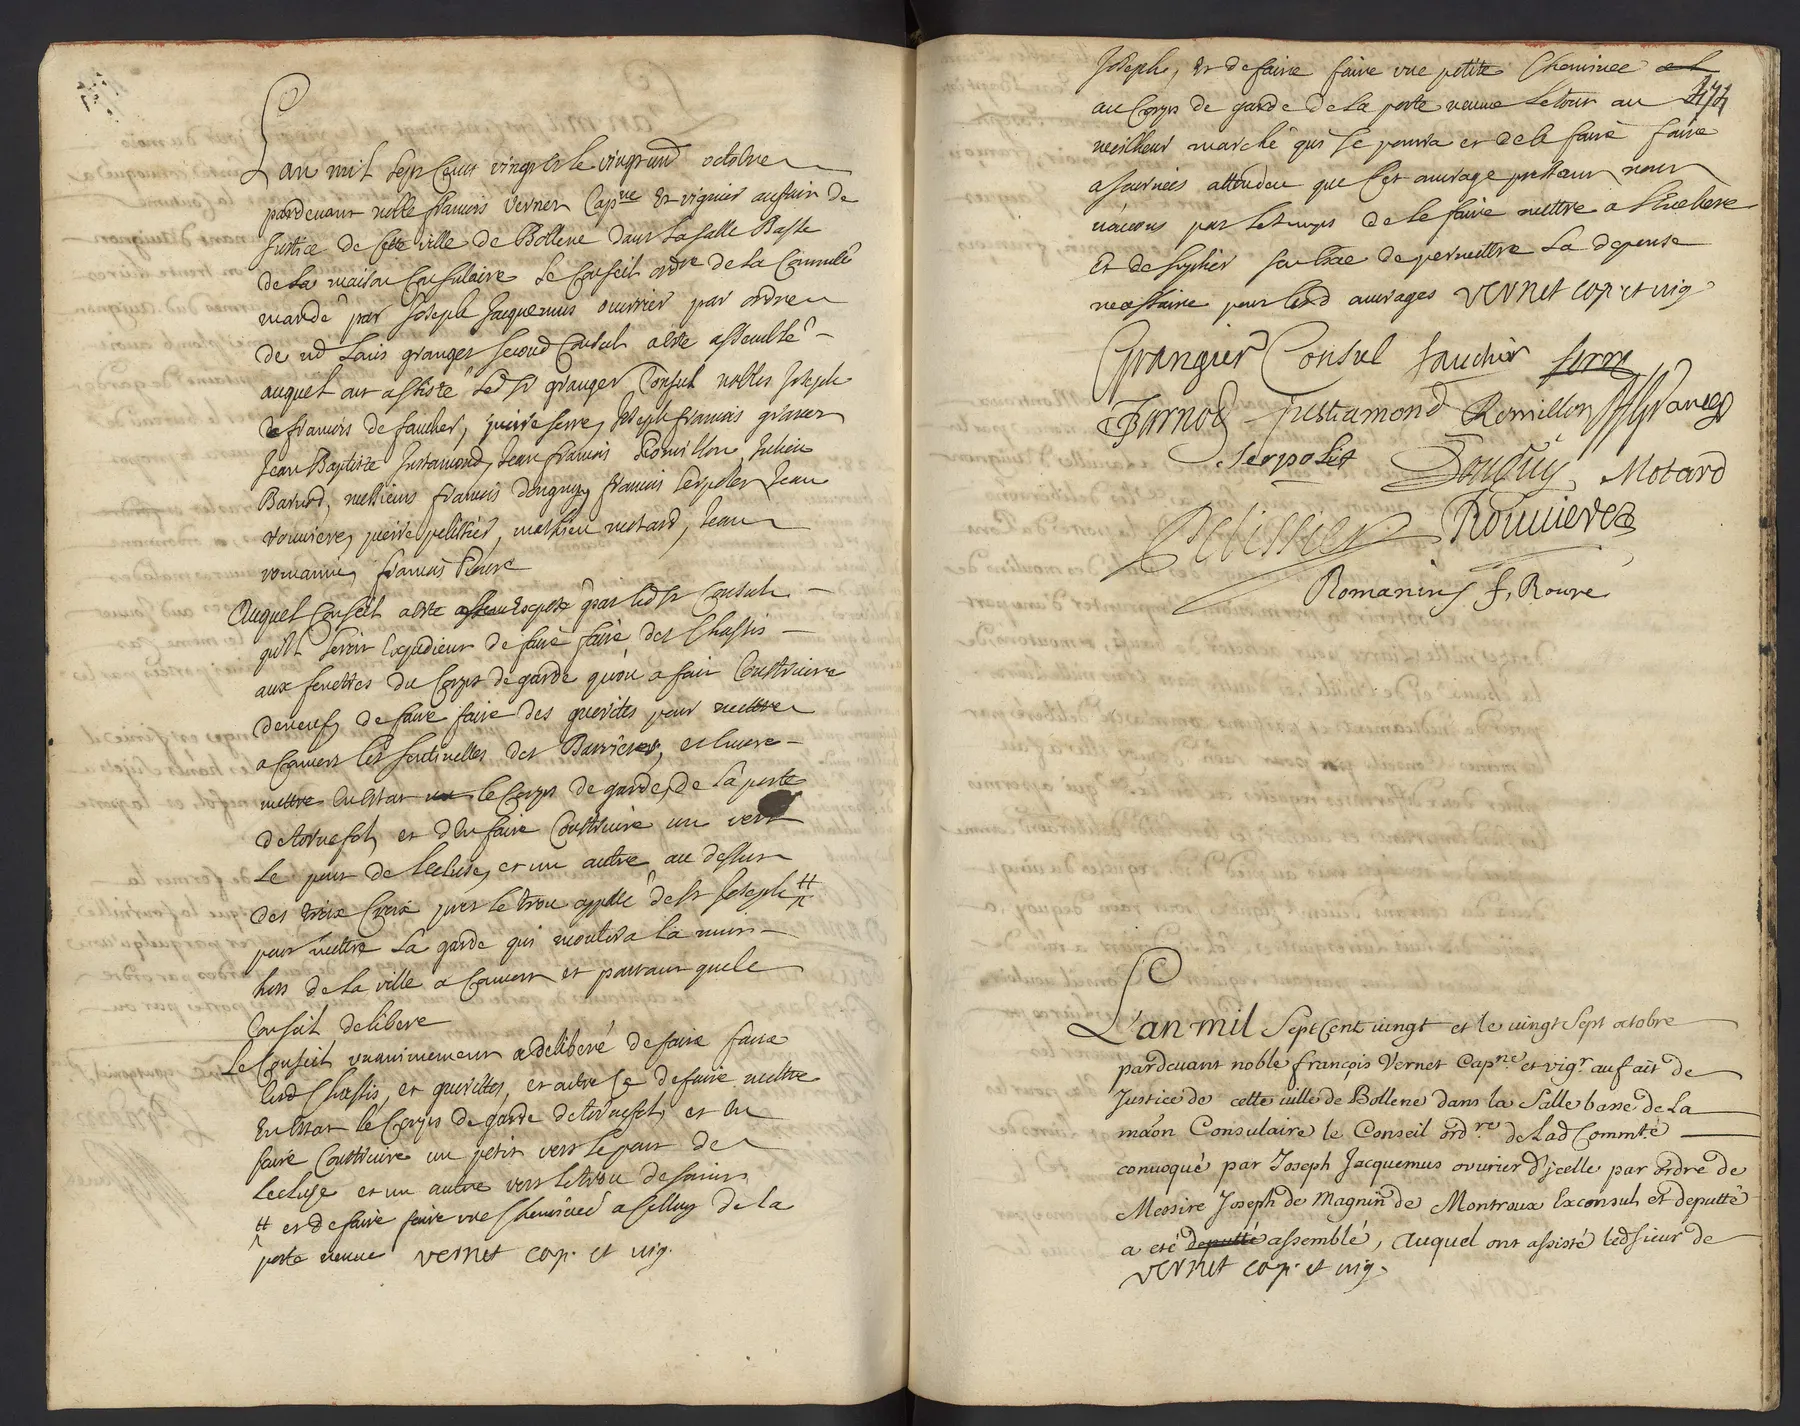 Lan mil sept Cens vingt et le vingt und octobre
pardevant noble francois vernet Cap.ne et viguier au fait de
Justice de Cette ville de Bollene dans la salle Basse
de la maison Consulaire le Conseil ord.re de la Commte
mandé par Joseph Jacquemus ouvrier par ordre
de nd Louis granger second Consul a este assemblé
auquel ont assisté led sr granger Consul nobles Joseph
francois de faucher, pierre serre, Joseph francois granet
Jean Baptiste Justamond, Jean francois Romillon, Julien
Barnd, messieurs francois donguy, francois serpolet, Jean
roumiere, pierre pelissier, mathieu motard, Jean
romanin, francois Roure
Auquel Conseil a este Exposé par led sr Consul
quil seroit Expedient de faire faire des Chassis
aux fenestres du Corps de garde quon a fait Construire
de neuf, de faire faire des guerites pour mettre
a Couvert les sentinelles des Barrieres, et
mettre en estat le Corps de garde, de la porte
de Tournefol, et den faire Construire un vers
le pont de lecluse, et un autre au dessus
des trois Croix vers le trou appellé de st Joseph #
pour mettre la garde qui montera la nuit
hors de la ville a Couvert et partant que le
Conseil delibere
Le Conseil unanimement a deliberé de faire faire
lesd Chassis, et guerittes, et de faire mettre
En estat le Corps de garde de Tournefol, et En
faire Construire un petit vers le pont de
lecluse et un autre vers le trou de saint
# et de faire faire une Cheminée a Celluy de la
porte neuve vernet cap. et vig.
Joseph, Et de faire faire une petite Cheminée et
au Corps de garde de la porte neuve le tout au 474
meilheur marché qui se pourra et de le faire faire
a journées attendeu que Cet ouvrage nous
navons pas le temps de le faire mettre a lenchere
Et de suplier de permettre la depense
necessaire pour lesd ouvrages vernet cap. et vig
Grangier Consul faucher serre
Barnod justamond Romillon JfGranet
Serpolet Donguy Motard
Pelissier Roumieres
Romanin f, Roure
L'an mil Sept Cent vingt et le vingt Sept octobre
pardevant noble françois Vernet Cap.ne et vig.r au fait de
Justice de cette ville de Bollene dans la Salle basse de La
mâon Consulaire le Conseil ord.re de Lad Comm.te
convoqué par Joseph Jacquemus ouvrier d'jcelle par ordre de
Messire Joseph de Magnin de Montroux Exconsul et deputté
a eté deputté assemblé, auquel ont assisté ledsieur de
vernet cap. et vig.